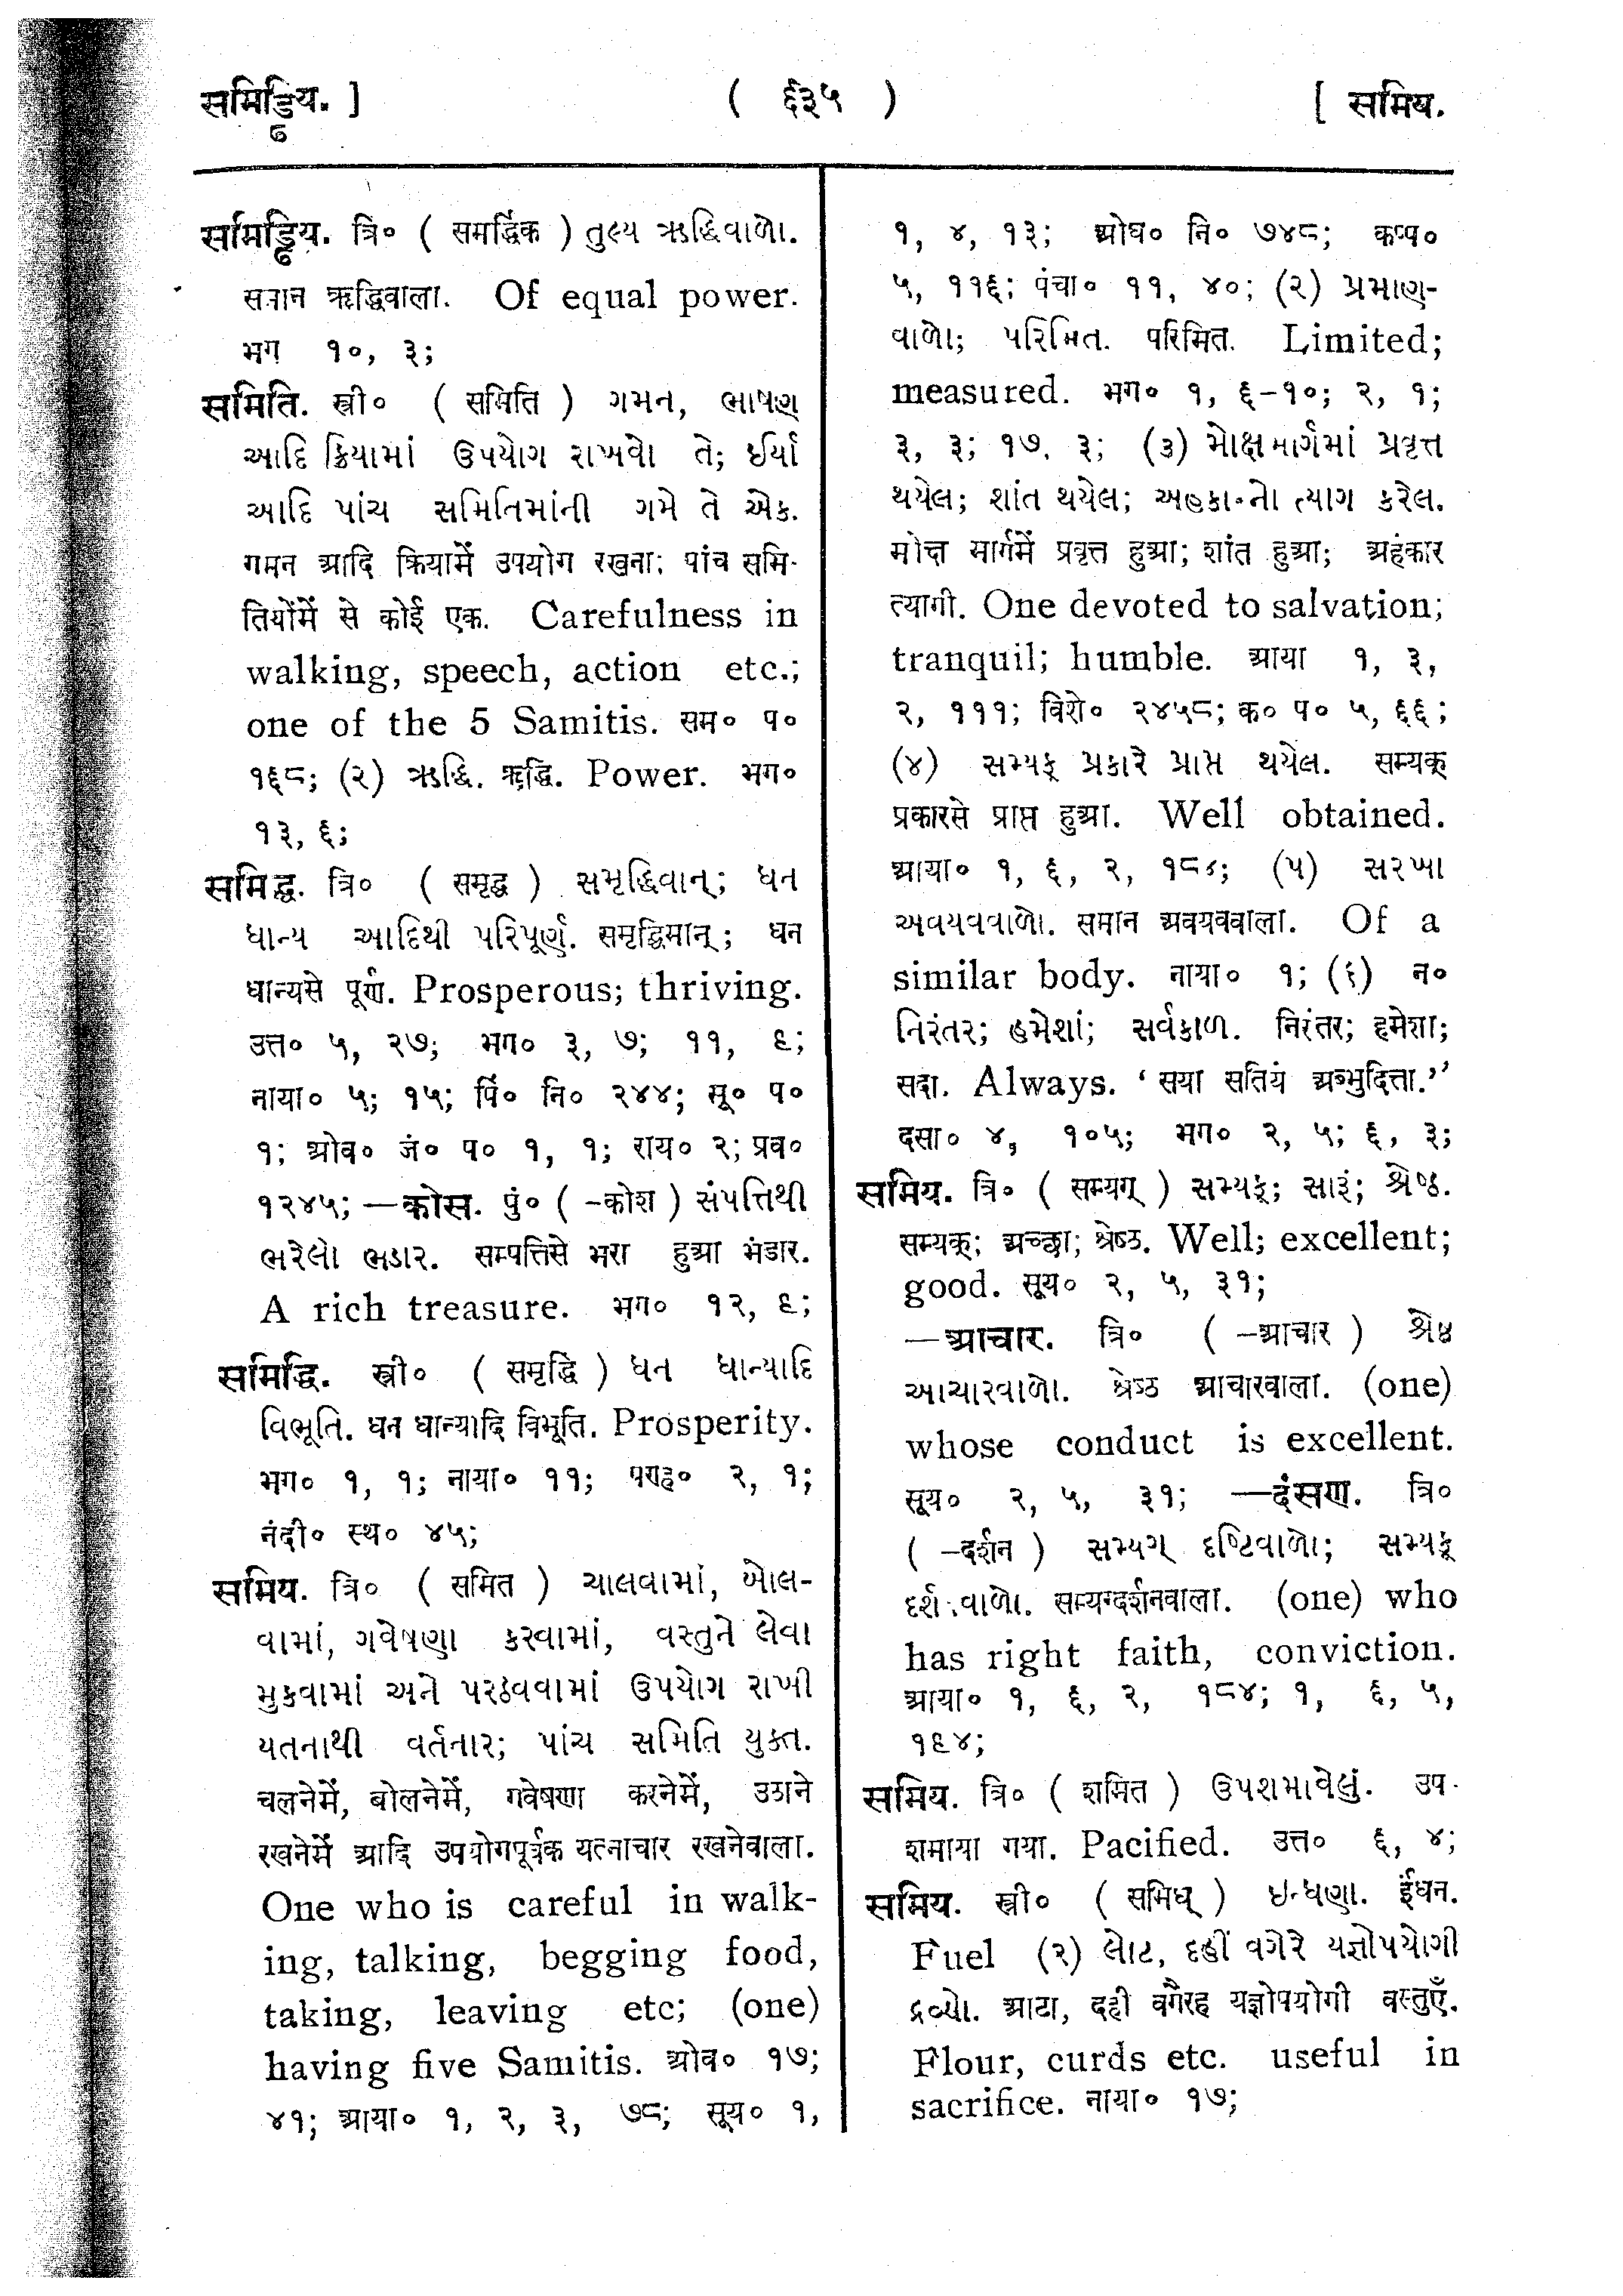 समिड्ढिय. ] ( ६३५ ) [ समिय.
समिड्ढिय. त्रि० ( समर्द्धिक ) તુલ્ય ઋદ્ધિવાળો.
समान ऋद्धिवाला. Of equal power.
भग १०, ३;
समिति. स्त्री० ( समिति ) ગમન, ભાષણ
આદિ ક્રિયામાં ઉપયોગ રાખવો તે; ઈર્યા
આદિ પાંચ સમિતિમાંની ગમે તે એક.
गमन आदि क्रियामें उपयोग रखना; पांच समि-
तियोंमें से कोई एक. Carefulness in
walking, speech, action etc.;
one of the 5 Samitis. सम० प०
१६८; (२) ઋદ્ધિ. ऋद्धि. Power. भग०
१३, ६;
समिद्ध. त्रि० ( समृद्ध ) સમૃદ્ધિવાન્; ધન
ધાન્ય આદિથી પરિપૂર્ણ. समृद्धिमान्; धन
धान्यसे पूर्ण. Prosperous; thriving.
उत्त० ५, २७; भग० ३, ७; ११, ९;
नाया० ५; १५; पिं० नि० २४४; सू० प०
१; ओव० जं० प० १, १; राय० २; प्रव०
१२४५; —कोस. पुं० ( -कोश ) સંપત્તિથી
ભરેલો ભડાર. सम्पत्तिसे भरा हुआ भंडार.
A rich treasure. भग० १२, ९;
समिद्धि. स्त्री० ( समृद्धि ) ધન ધાન્યાદિ
વિભૂતિ. धन धान्यादि विभूति. Prosperity.
भग० १, १; नाया० ११; पण्ह० २, १;
नंदी० स्थ० ४५;
समिय. त्रि० ( समित ) ચાલવામાં, બોલ-
વામાં, ગવેષણા કરવામાં, વસ્તુને લેવા
મુકવામાં અને પરઠવવામાં ઉપયોગ રાખી
યતનાથી વર્તનાર; પાંચ સમિતિ યુક્ત.
चलनेमें, बोलनेमें, गवेषणा करनेमें, उठाने
रखनेमें आदि उपयोगपूर्वक यत्नाचार रखनेवाला.
One who is careful in walk-
ing, talking, begging food,
taking, leaving etc; (one)
having five Samitis. ओव० १७;
४१; आया० १, २, ३, ७८; सूय० १,
१, ४, १३; ओघ० नि० ७४८; कप्प०
५, ११६; पंचा० ११, ४०; (२) પ્રમાણ-
વાળો; પરિમિત. परिमित. Limited;
measured. भग० १, ६-१०; २, १;
३, ३; १७, ३; (૩) મોક્ષમાર્ગમાં પ્રવૃત્ત
થયેલ; શાંત થયેલ; ત્યાગ કરેલ.
मोक्ष मार्गमें प्रवृत्त हुआ; शांत हुआ; अहंकार
त्यागी. One devoted to salvation;
tranquil; humble. आया १, ३,
२, १११; विशे० २४५८; क० प० ५, ६६;
(४) સમ્યક્ પ્રકારે પ્રાપ્ત થયેલ. सम्यक्
प्रकारसे प्राप्त हुआ. Well obtained.
आया० १, ६, २, १८४; (૫) સરખા
અવયવવાળો. समान अवयववाला. Of a
similar body. नाया० १; (६) न०
નિરંતર; હમેશાં; સર્વકાળ. निरंतर; हमेशा;
सदा. Always. ‘ सया सतियं अब्भुदित्ता.”
दसा० ४, १०५; भग० २, ५; ६, ३;
समिय. त्रि० ( सम्यग् ) સમ્યક્; સારૂં; શ્રેષ્ઠ.
सम्यक्; अच्छा; श्रेष्ठ. Well; excellent;
good. सूय० २, ५, ३१;
—आचार. त्रि० ( -आचार ) શ્રેષ્ઠ
આચારવાળો. श्रेष्ठ आचारवाला. (one)
whose conduct is excellent.
सूय० २, ५, ३१; —दंसण. त्रि०
( -दर्शन ) સમ્યગ્ દૃષ્ટિવાળો; સમ્યક્
દર્શનવાળો. सम्यग्दर्शनवाला. (one) who
has right faith, conviction.
आया० १, ६, २, १८४; १, ६, ५,
१९४;
समिय. त्रि० ( शमित ) ઉપશમાવેલું. उप-
शमाया गया. Pacified. उत्त० ६, ४;
समिय. स्त्री० ( समिध् ) ઇન્ધણા. ईंधन.
Fuel (२) લોટ, દહીં વગેરે યજ્ઞોપયોગી
દ્રવ્યો. आटा, दही वगैरह यज्ञोपयोगी वस्तुएँ.
Flour, curds etc. useful in
sacrifice. नाया० १७;